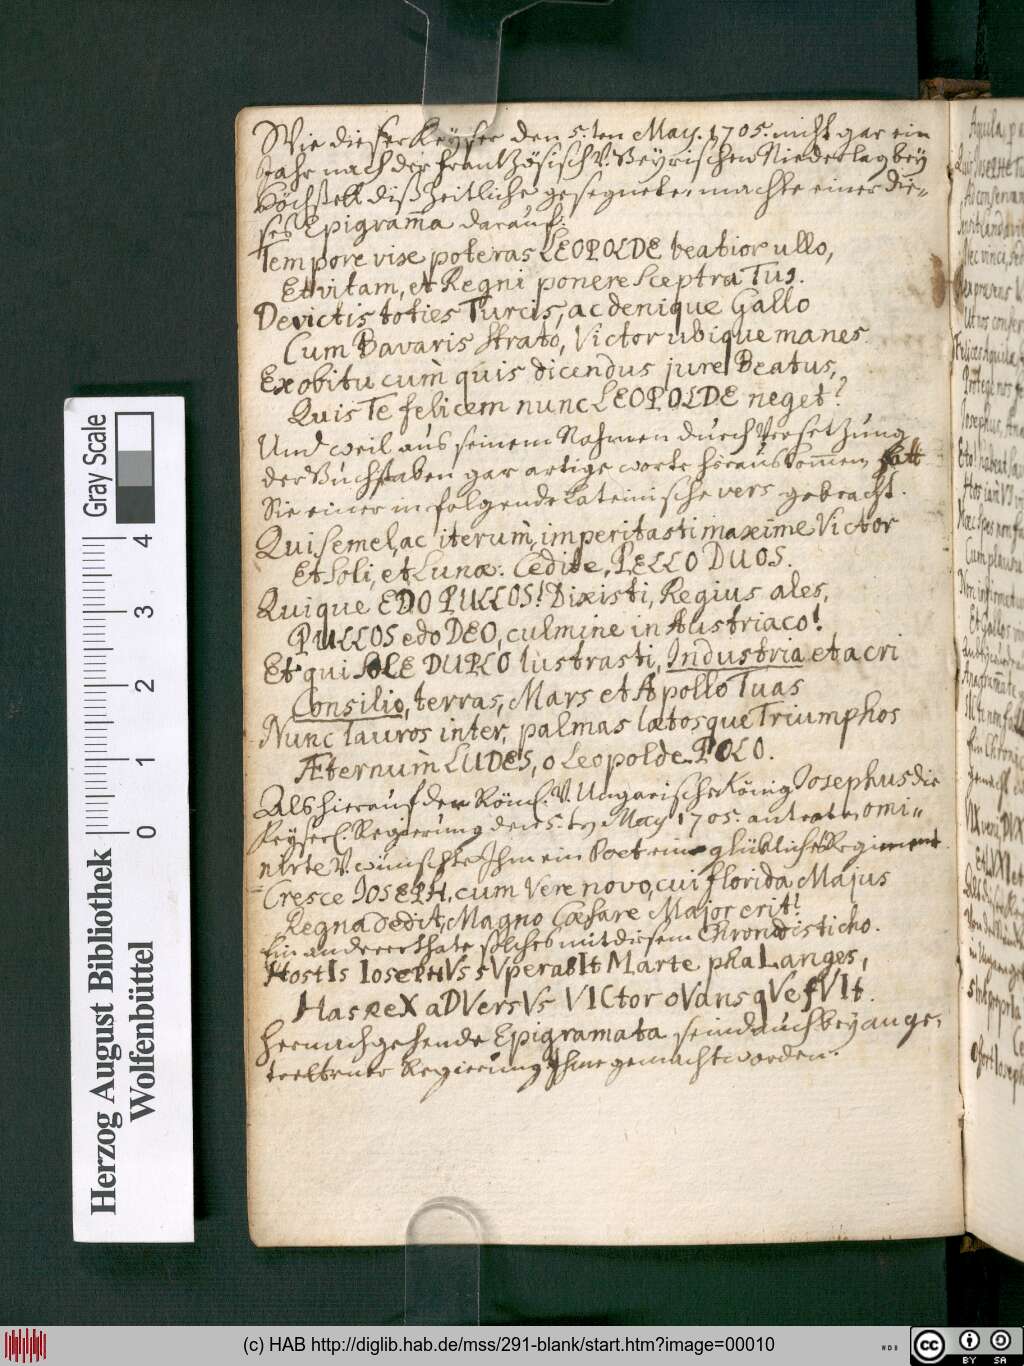 Wie dieser Keyser den 5.ten May. 1705. nicht gar ein
Jahr nach der frantzösisch. V. Beyrischen Niederlag bey
Höchstett diß Zeitliche gesegnete, machte einer die-
ses Epigram̄a darauf:
Tempore vix poteras LEOPOLDE beatior ullo,
Et vitam, et Regni ponere Sceptra Tui.
Devictis toties Turcis, ac denique Gallo
Cum Bavaris strato, Victor ubique manes.
Ex obitu cum quis dicendus jure Beatus,
Quis Te felicem nunc LEOPOLDE neget?
Und weil aus seinem Nahmen durch Versetzung
der Buchstaben gar artige worte herauskom̄en, hatt
Sie einer in folgende Lateinische vers gebracht.
Qui semel, ac iterum, imperitasti maxime Victor
Et Soli, et Lunæ: Cedite, PELLO DUOS.
Quique EDO PULLOS! Dixisti, Regius ales,
PULLOS edo DEO, culmine in Austriaco!
Et qui SOLE DUPLO lustrasti, Industria et acri
Consilio, terras, Mars et Apollo Tuas
Nunc lauros inter, palmas lætosque Triumphos
Æternum LUDES, o Leopolde POLO.
Als hierauf der Röm. V. Ungarische König Josephus die
Keyserl. Regierung den 5. ten May 1705. antrate, omi-
nirte V. wünschte Ihm ein Poet ein glückliches Regiment.
Cresce IOSEPH, cum Vere novo, cui florida Majus
Regna dedit, Magno Cæsare Major erit!
Ein anderer thate solches mit diesem Chronodisticho.
HostIs IosePHVs sVperabIt Marte phaLanges,
Has ReX aDVersVs VICtor oVansqVe fVIt.
Hernachgehende Epigramata seind auch bey ange-
trettener Regierung Ihme gemacht worden.
0 1 2 3 4
Gray Scale
Herzog August Bibliothek
Wolfenbüttel
(c) HAB http://diglib.hab.de/mss/291-blank/start.htm?image=00010
WDB
cc BY SA